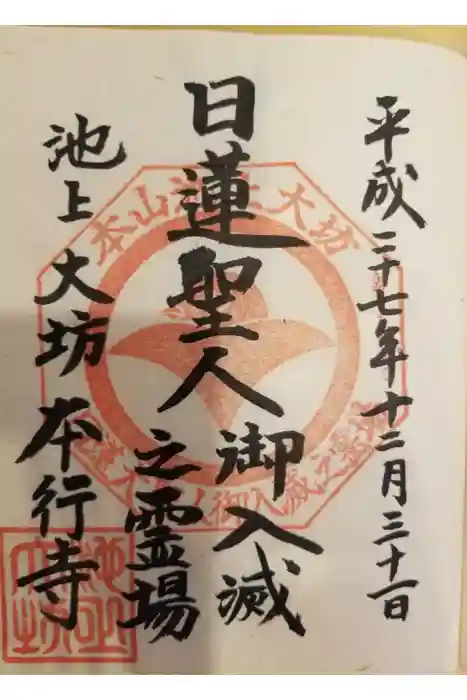 平成二十七年十二月三十一日
日蓮聖人御入滅
之霊場
池上大坊本行寺
本山池上大坊